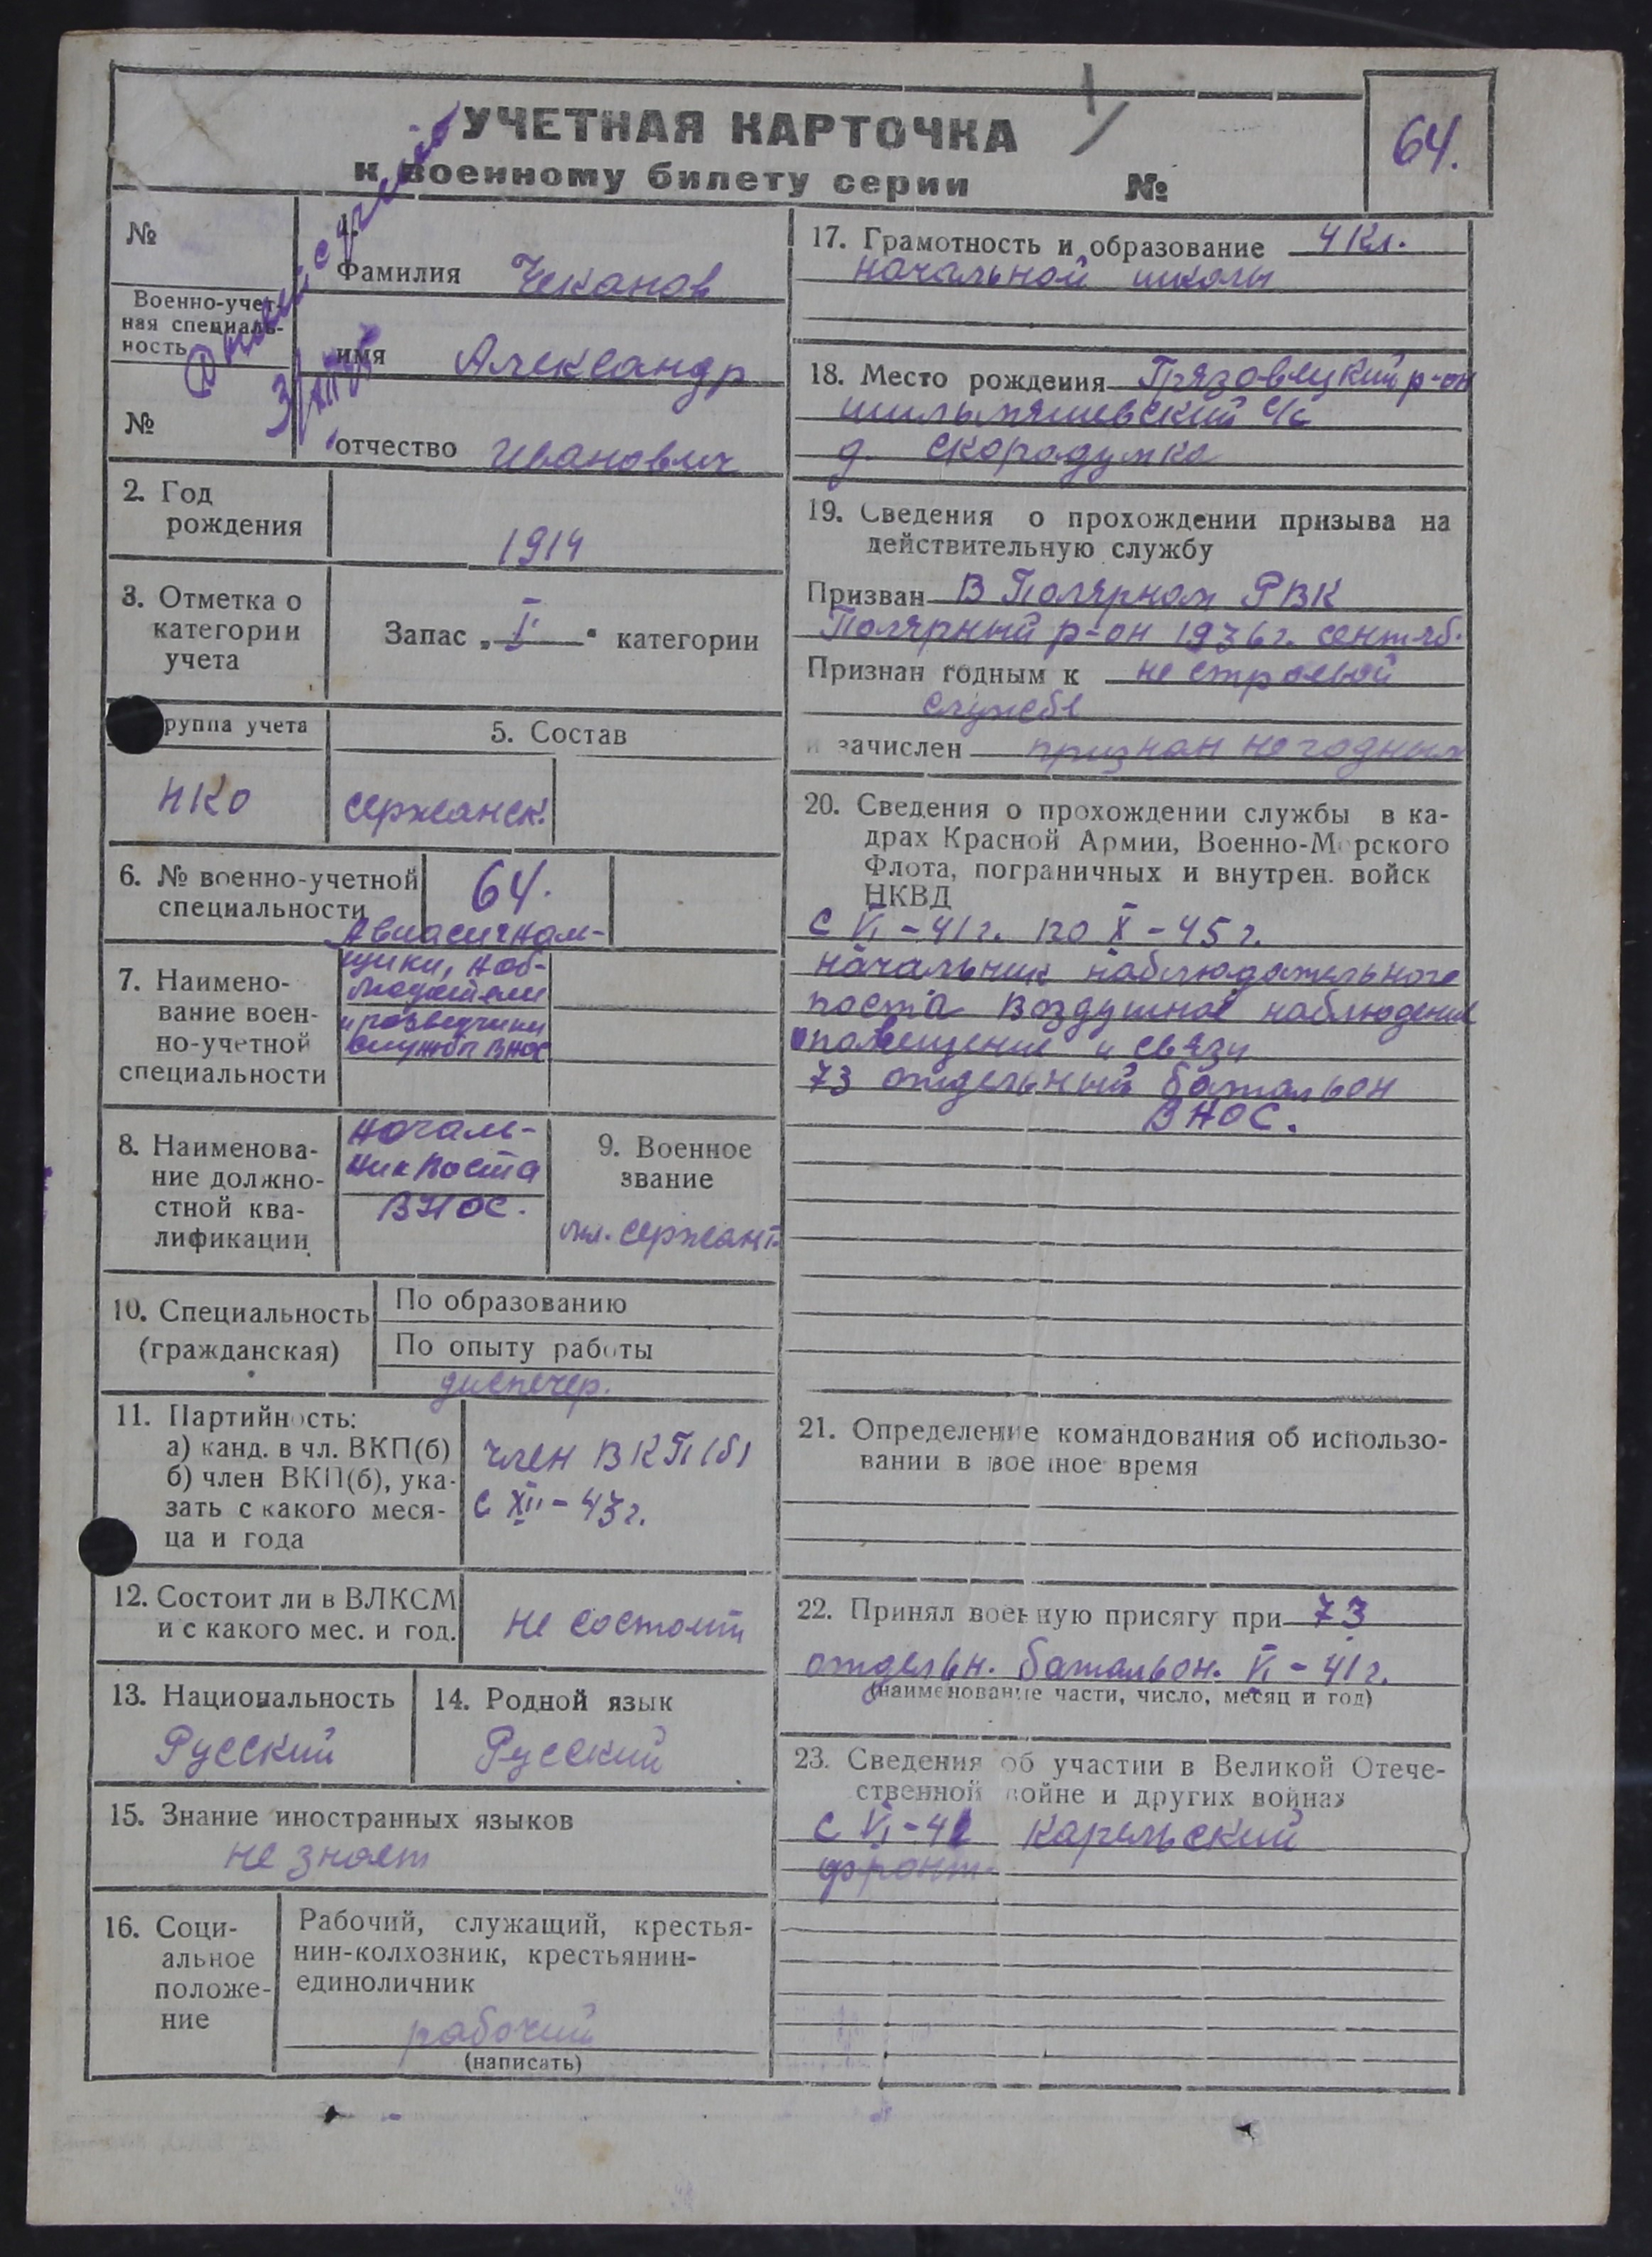 УЧЕТНАЯ КАРТОЧКА
к военному билету серии №
64.
№
Военно-учет-
ная специаль-
ность
№
1.
Фамилия Чеканов
имя Александр
отчество Иванович
2. Год
рождения
1914
3. Отметка о
категории
учета
Запас „I“ категории
руппа учета
НКО
5. Состав
сержанск.
6. № военно-учетной
специальности
64.
7. Наимено-
вание воен-
но-учетной
специальности
Авиасигналь-
щики, наб-
людатели
и разведчики
службы ВНОС
8. Наименова-
ние должно-
стной ква-
лификации
началь-
ник поста
ВНОС.
9. Военное
звание
мл. сержант
10. Специальность
(гражданская)
По образованию
По опыту работы
диспечер.
11. Партийность:
а) канд. в чл. ВКП(б)
б) член ВКП(б), ука-
зать с какого меся-
ца и года
член ВКП(б)
с XII - 43 г.
12. Состоит ли в ВЛКСМ
и с какого мес. и год.
не состоит
13. Национальность
Русский
14. Родной язык
Русский
15. Знание иностранных языков
не знает
16. Соци-
альное
положе-
ние
Рабочий, служащий, крестья-
нин-колхозник, крестьянин-
единоличник
рабочий
(написать)
17. Грамотность и образование 4 кл.
начальной школы
18. Место рождения Грязовецкий р-он
с/с
д. Скородумка
19. Сведения о прохождении призыва на
действительную службу
Призван В Полярном РВК
Полярный р-он 1936 г. сентяб.
Признан годным к не строевой
службе
и зачислен признан не годным
20. Сведения о прохождении службы в ка-
драх Красной Армии, Военно-Морского
Флота, пограничных и внутрен. войск
НКВД
с VI - 41 г. по X - 45 г.
начальник наблюдательного
поста воздушное наблюдение
оповещение и связи
73 отдельный батальон
ВНОС.
21. Определение командования об использо-
вании в военное время
22. Принял военную присягу при 73
отдельн. батальон. VI - 41 г.
(наименование части, число, месяц и год)
23. Сведения об участии в Великой Отече-
ственной войне и других войнах
с VI - 41 Карельский
фронт